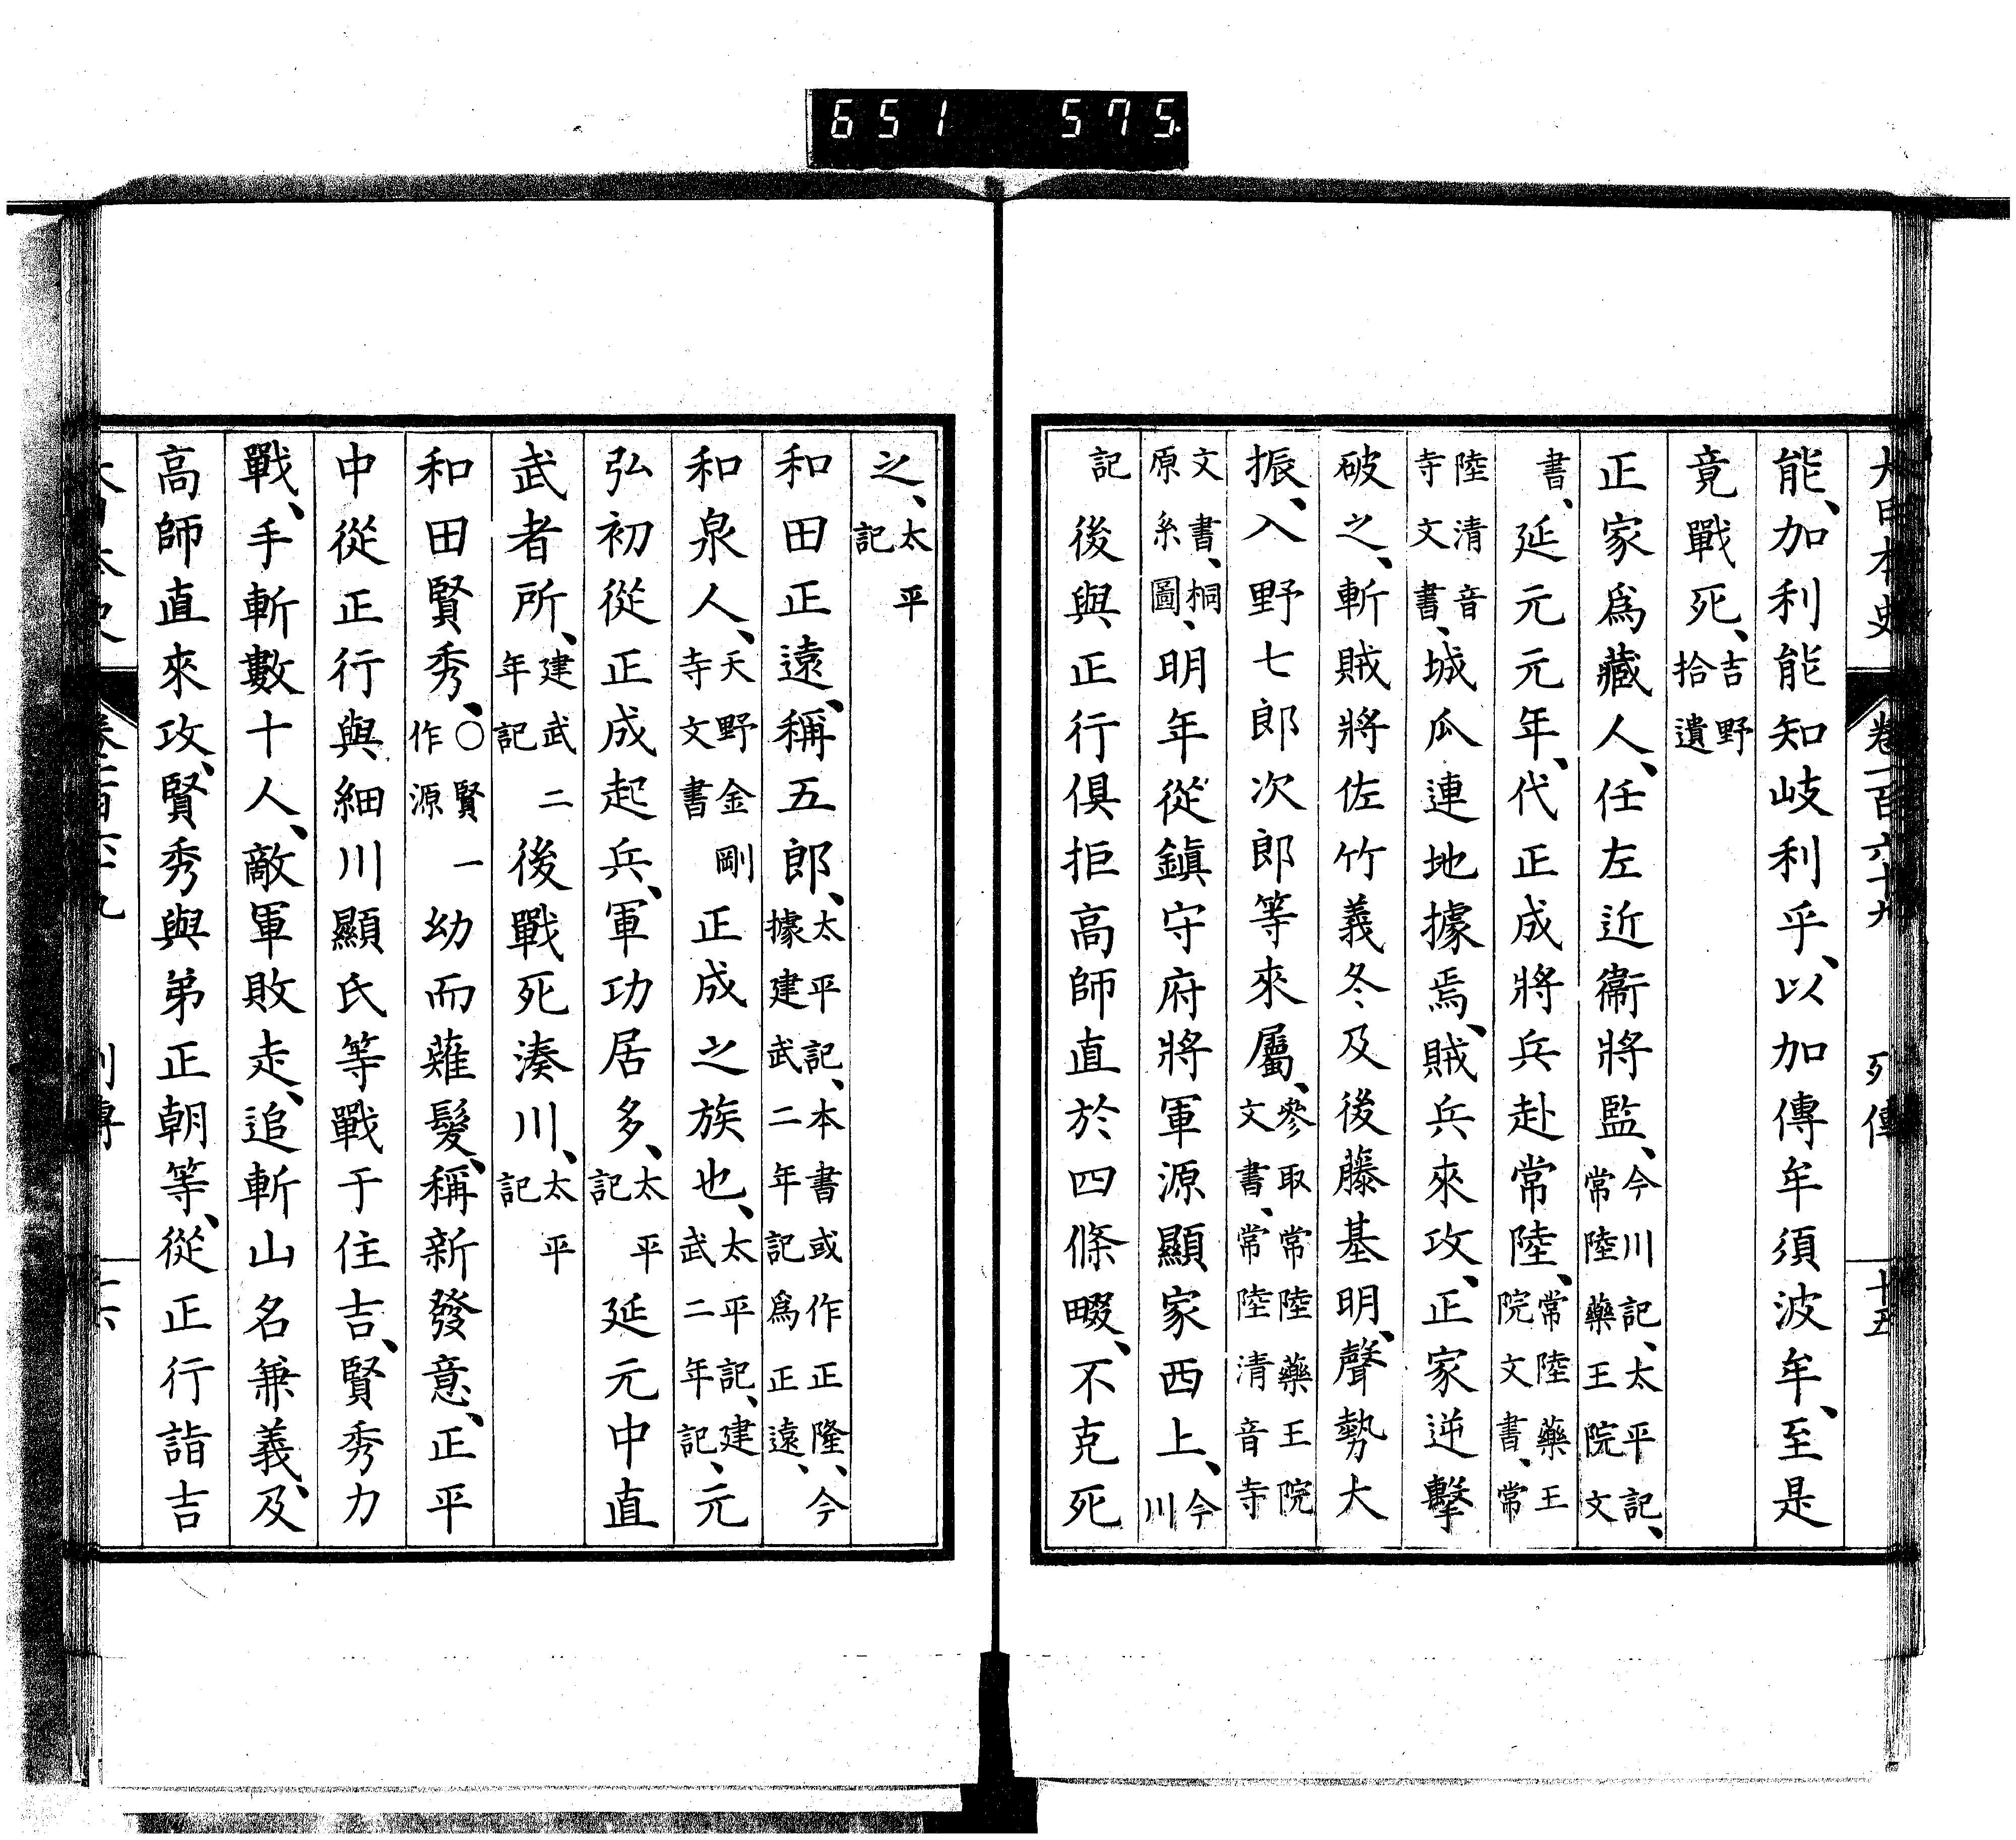 651 575.
大日本史 卷一百六十九 列傳 十五
能、加利能知岐利乎、以加傳牟須波牟、至是
竟戰死、吉野拾遺
正家爲藏人、任左近衞將監、今川記、太平記、常陸藥王院文
書、延元元年、代正成將兵赴常陸、常陸藥王院文書、常
陸清音寺文書、城瓜連地據焉、賊兵來攻、正家逆擊
破之、斬賊將佐竹義冬及後藤基明、聲勢大
振、入野七郎次郎等來屬、參取常陸藥王院文書、常陸清音寺
文書、桐原系圖、明年從鎭守府將軍源顯家西上、今川
記後與正行俱拒高師直於四條畷、不克死
之、太平記
和田正遠、稱五郎、太平記、本書或作正隆、今據建武二年記爲正遠、
和泉人、天野金剛寺文書正成之族也、太平記、建武二年記、元
弘初從正成起兵、軍功居多、太平記延元中直
武者所、建武二年記後戰死湊川、太平記
和田賢秀、○賢一作源幼而薙髮、稱新發意、正平
中從正行與細川顯氏等戰于住吉、賢秀力
戰、手斬數十人、敵軍敗走、追斬山名兼義、及
高師直來攻、賢秀與弟正朝等、從正行詣吉
大日本史 卷一百六十九 列傳 十六